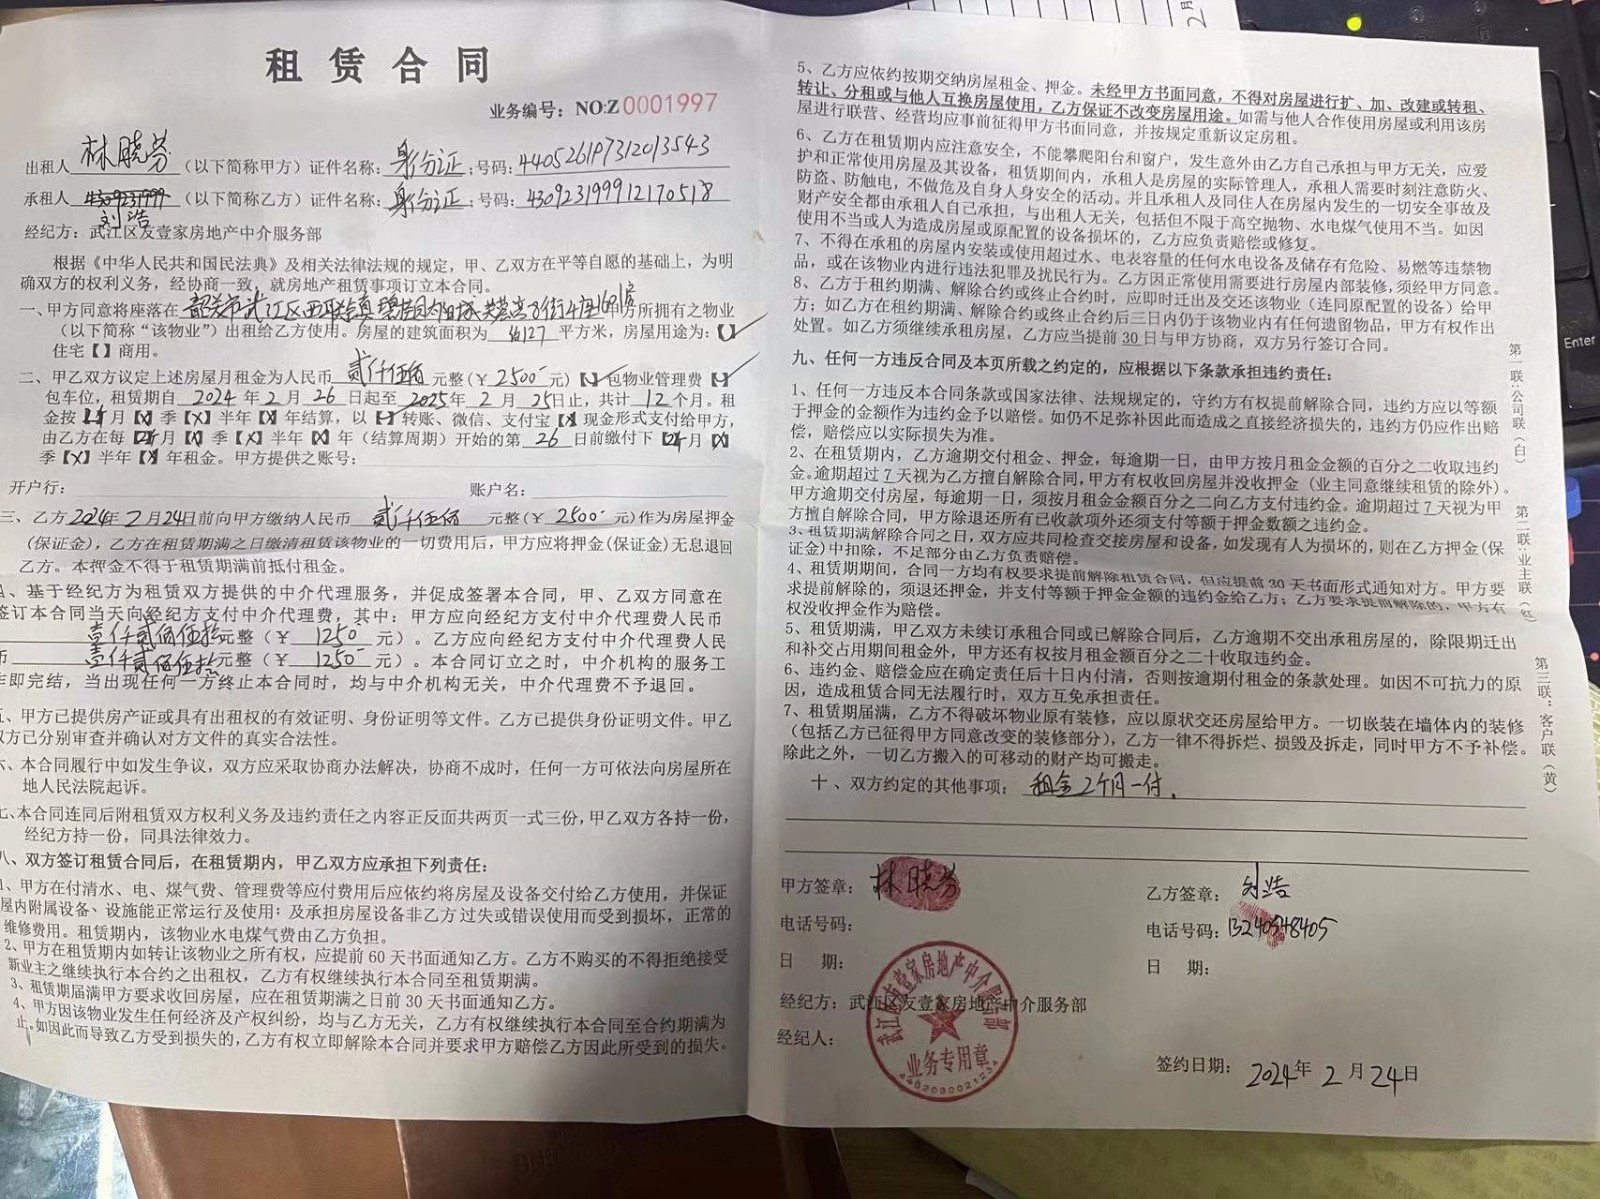 租 赁 合 同
业务编号：NO:Z 0001997
出租人 林晓芬 （以下简称甲方）证件名称：身份证；号码：440526197312013543
承租人 刘浩 （以下简称乙方）证件名称：身份证；号码：430923199912170518
经纪方：武江区友壹家房地产中介服务部
根据《中华人民共和国民法典》及相关法律法规的规定，甲、乙双方在平等自愿的基础上，为明
确双方的权利义务，经协商一致，就房地产租赁事项订立本合同。
一、甲方同意将座落在 韶关市武江区西联镇碧桂园太阳城芙蓉 街4座1601房所拥有之物业
（以下简称“该物业”）出租给乙方使用。房屋的建筑面积为 127 平方米，房屋用途为：【】
住宅【】商用。
二、甲乙双方议定上述房屋月租金为人民币 贰仟伍佰 元整（¥ 2500 元）【】包物业管理费【】
包车位，租赁期自 2024 年 2 月 26 日起至 2025 年 2 月 25日止，共计 12 个月。租
金按【】月【X】季【X】半年【X】年结算，以【】转账、微信、支付宝【X】现金形式支付给甲方，
由乙方在每【】月【X】季【X】半年【X】年（结算周期）开始的第 26 日前缴付下【】月【X】
季【X】半年【X】年租金。甲方提供之账号：
开户行： 账户名：
三、乙方2024年2月24日前向甲方缴纳人民币 贰仟伍佰 元整（¥ 2500 元）作为房屋押金
(保证金)，乙方在租赁期满之日缴清租赁该物业的一切费用后，甲方应将押金(保证金)无息退回
乙方。本押金不得于租赁期满前抵付租金。
、基于经纪方为租赁双方提供的中介代理服务，并促成签署本合同，甲、乙双方同意在
签订本合同当天向经纪方支付中介代理费，其中：甲方应向经纪方支付中介代理费人民币
壹仟贰佰伍拾元整（¥ 1250 元）。乙方应向经纪方支付中介代理费人民
币 壹仟贰佰伍拾元整（¥ 1250 元）。本合同订立之时，中介机构的服务工
作即完结，当出现任何一方终止本合同时，均与中介机构无关，中介代理费不予退回。
、甲方已提供房产证或具有出租权的有效证明、身份证明等文件。乙方已提供身份证明文件。甲乙
双方已分别审查并确认对方文件的真实合法性。
六、本合同履行中如发生争议，双方应采取协商办法解决，协商不成时，任何一方可依法向房屋所在
地人民法院起诉。
七、本合同连同后附租赁双方权利义务及违约责任之内容正反面共两页一式三份，甲乙双方各持一份，
经纪方持一份，同具法律效力。
八、双方签订租赁合同后，在租赁期内，甲乙双方应承担下列责任：
1、甲方在付清水、电、煤气费、管理费等应付费用后应依约将房屋及设备交付给乙方使用，并保证
屋内附属设备、设施能正常运行及使用；及承担房屋设备非乙方过失或错误使用而受到损坏，正常的
维修费用。租赁期内，该物业水电煤气费由乙方负担。
2、甲方在租赁期内如转让该物业之所有权，应提前 60 天书面通知乙方。乙方不购买的不得拒绝接受
新业主之继续执行本合约之出租权，乙方有权继续执行本合同至租赁期满。
3、租赁期届满甲方要求收回房屋，应在租赁期满之日前 30 天书面通知乙方。
4、甲方因该物业发生任何经济及产权纠纷，均与乙方无关，乙方有权继续执行本合同至合约期满为
止。如因此而导致乙方受到损失的，乙方有权立即解除本合同并要求甲方赔偿乙方因此所受到的损失。
5、乙方应依约按期交纳房屋租金、押金。未经甲方书面同意，不得对房屋进行扩、加、改建或转租、
转让、分租或与他人互换房屋使用，乙方保证不改变房屋用途。如需与他人合作使用房屋或利用该房
屋进行联营、经营均应事前征得甲方书面同意，并按规定重新议定房租。
6、乙方在租赁期内应注意安全，不能攀爬阳台和窗户，发生意外由乙方自己承担与甲方无关，应爱
护和正常使用房屋及其设备，租赁期间内，承租人是房屋的实际管理人，承租人需要时刻注意防火、
防盗、防触电，不做危及自身人身安全的活动。并且承租人及同住人在房屋内发生的一切安全事故及
财产安全都由承租人自己承担，与出租人无关，包括但不限于高空抛物、水电煤气使用不当。如因
使用不当或人为造成房屋或原配置的设备损坏的，乙方应负责赔偿或修复。
7、不得在承租的房屋内安装或使用超过水、电表容量的任何水电设备及储存有危险、易燃等违禁物
品，或在该物业内进行违法犯罪及扰民行为。乙方因正常使用需要进行房屋内部装修，须经甲方同意。
8、乙方于租约期满、解除合约或终止合约时，应即时迁出及交还该物业（连同原配置的设备）给甲
方；如乙方在租约期满、解除合约或终止合约后三日内仍于该物业内有任何遗留物品，甲方有权作出
处置。如乙方须继续承租房屋，乙方应当提前 30 日与甲方协商，双方另行签订合同。
九、任何一方违反合同及本页所载之约定的，应根据以下条款承担违约责任：
1、任何一方违反本合同条款或国家法律、法规规定的，守约方有权提前解除合同，违约方应以等额
于押金的金额作为违约金予以赔偿。如仍不足弥补因此而造成之直接经济损失的，违约方仍应作出赔
偿，赔偿应以实际损失为准。
2、在租赁期内，乙方逾期交付租金、押金，每逾期一日，由甲方按月租金金额的百分之二收取违约
金。逾期超过 7 天视为乙方擅自解除合同，甲方有权收回房屋并没收押金（业主同意继续租赁的除外）。
甲方逾期交付房屋，每逾期一日，须按月租金金额百分之二向乙方支付违约金。逾期超过 7 天视为甲
方擅自解除合同，甲方除退还所有已收款项外还须支付等额于押金数额之违约金。
3、租赁期满解除合同之日，双方应共同检查交接房屋和设备，如发现有人为损坏的，则在乙方押金(保
证金)中扣除，不足部分由乙方负责赔偿。
4、租赁期期间，合同一方均有权要求提前解除租赁合同，但应提前 30 天书面形式通知对方。甲方要
求提前解除的，须退还押金，并支付等额于押金金额的违约金给乙方；乙方要求提前解除的，甲方有
权没收押金作为赔偿。
5、租赁期满，甲乙双方未续订承租合同或已解除合同后，乙方逾期不交出承租房屋的，除限期迁出
和补交占用期间租金外，甲方还有权按月租金额百分之二十收取违约金。
6、违约金、赔偿金应在确定责任后十日内付清，否则按逾期付租金的条款处理。如因不可抗力的原
因，造成租赁合同无法履行时，双方互免承担责任。
7、租赁期届满，乙方不得破坏物业原有装修，应以原状交还房屋给甲方。一切嵌装在墙体内的装修
（包括乙方已征得甲方同意改变的装修部分），乙方一律不得拆烂、损毁及拆走，同时甲方不予补偿。
除此之外，一切乙方搬入的可移动的财产均可搬走。
十、双方约定的其他事项： 租金2个月一付．
甲方签章： 林晓芬 乙方签章： 刘浩
电话号码： 电话号码：13240548405
日 期： 日 期：
经纪方：武江区友壹家房地产中介服务部
经纪人：
签约日期：2024年 2 月 24日
业务专用章
第一联：公司联（白）
第二联：业主联（红）
第三联：客户联（黄）
Enter